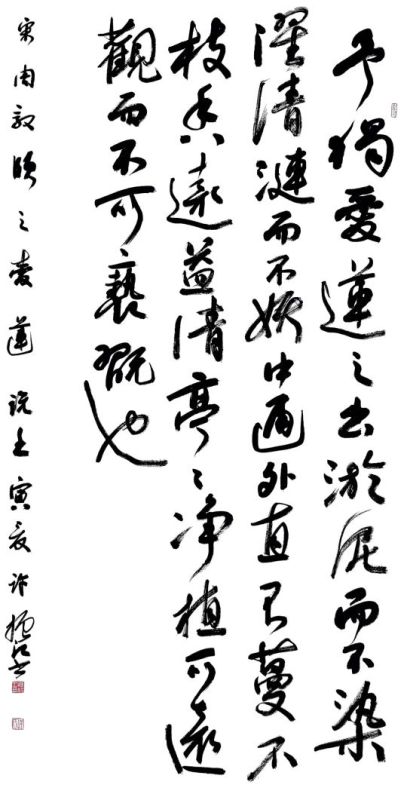 予獨愛蓮之出淤泥而不染
濯清漣而不妖中通外直不蔓不
枝香遠益清亭〻净植可遠
觀而不可褻翫也
宋周敦頤之愛蓮説壬寅夏许